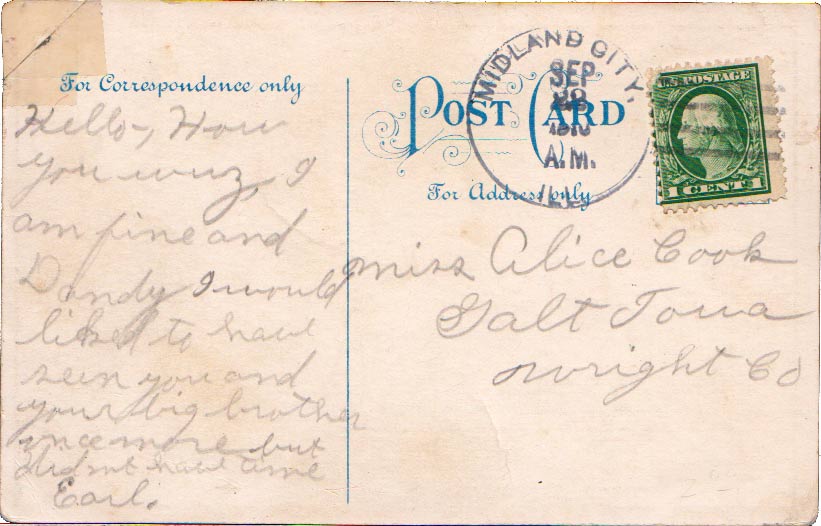 For Correspondence only
Hello-, How
you wuz, I
am fine and
Dandy I would
liked to have
seen you and
your big brother
once more but
didnt have time
Earl.
POST CARD
For Address only
MIDLAND CITY,
SEP
28
A.M.
ILL.
U.S. POSTAGE
1 CENT 1
Miss Alice Cook
Galt Iowa
Wright Co